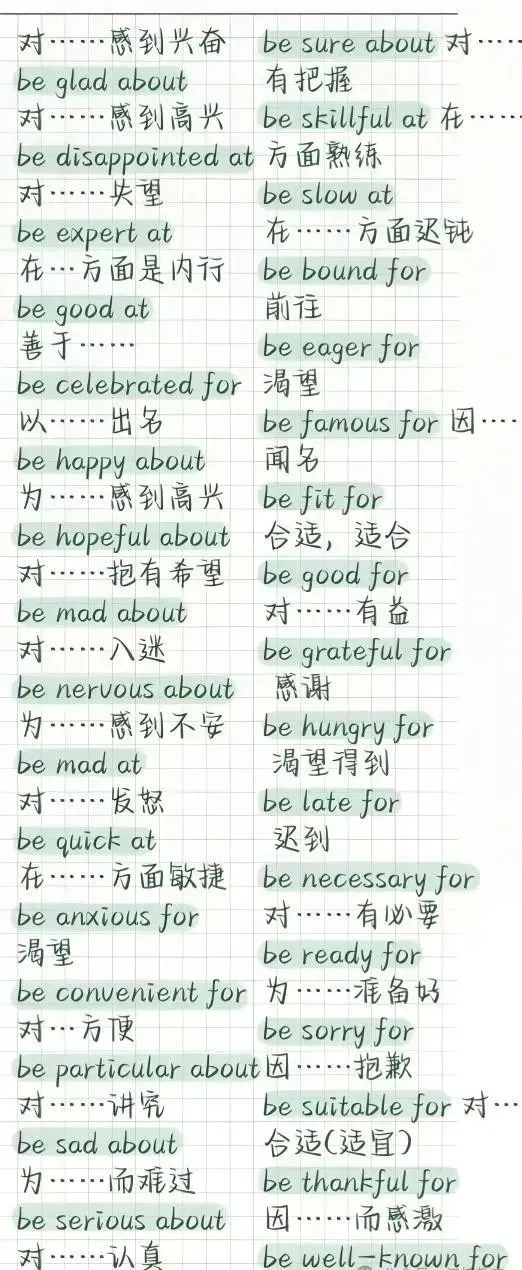 对……感到兴奋
be glad about
对……感到高兴
be disappointed at
对……失望
be expert at
在…方面是内行
be good at
善于……
be celebrated for
以……出名
be happy about
为……感到高兴
be hopeful about
对……抱有希望
be mad about
对……入迷
be nervous about
为……感到不安
be mad at
对……发怒
be quick at
在……方面敏捷
be anxious for
渴望
be convenient for
对…方便
be particular about
对……讲究
be sad about
为……而难过
be serious about
对……认真
be sure about 对……
有把握
be skillful at 在……
方面熟练
be slow at
在……方面迟钝
be bound for
前往
be eager for
渴望
be famous for 因……
闻名
be fit for
合适，适合
be good for
对……有益
be grateful for
感谢
be hungry for
渴望得到
be late for
迟到
be necessary for
对……有必要
be ready for
为……准备好
be sorry for
因……抱歉
be suitable for 对……
合适(适宜)
be thankful for
因……而感激
be well-known for